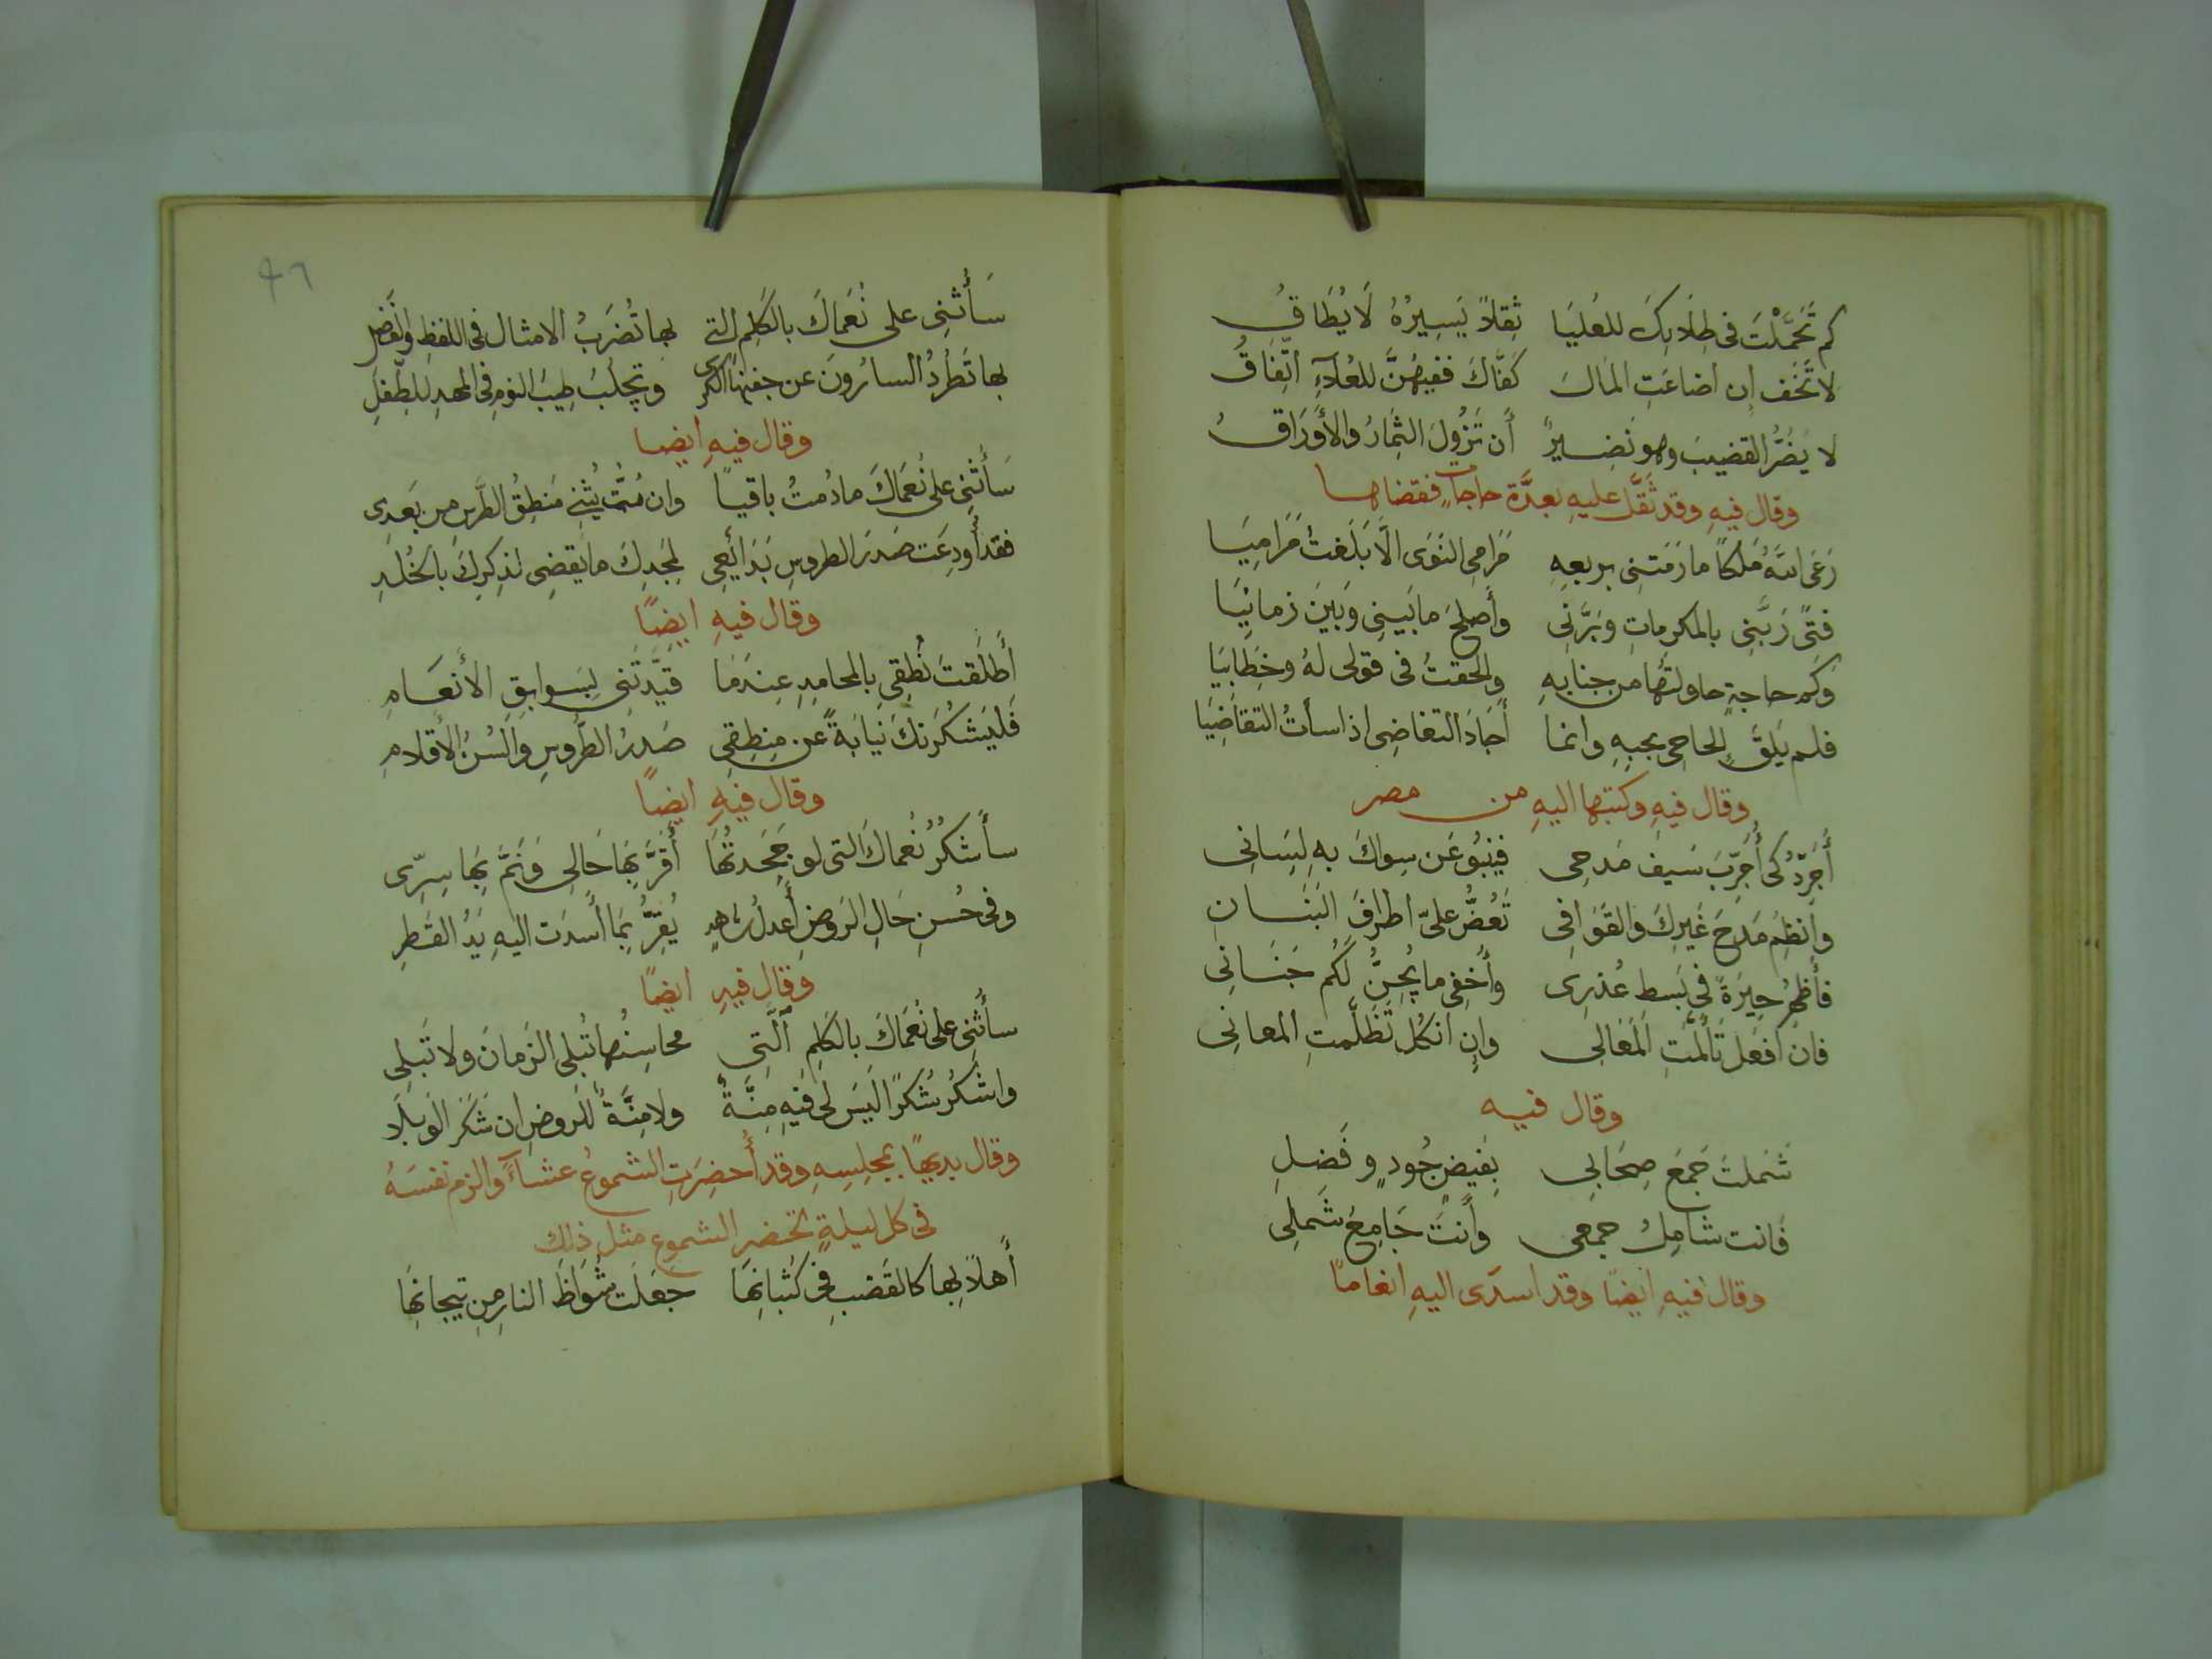 كم تَحَمَّلْتَ فى طِلَابِكَ للعُليَا ثِقلاً يَسِيرُهُ لَا يُطَاقُ
لا تَخَف إن اضاعَتِ المَالَ كَفَّاكَ ففيهِنَّ للعُلآءِ اتِّفَاقُ
لا يَضُرُّ القضيبَ وهو نَضِيرٌ أن تَزُولَ الثِّمَارُ والأَورَاقُ
وقال فيهِ وقد ثَقَّلَ عليهِ بعدَّة حاجاتٍ فقضاها
رَعَى اللهُ مَلكًا ما رَمَتنِى بربعِهِ مَرَامِى النَوَى الَّا بَلَغتُ مَرَامِيَا
فتًى رَبَّنِى بالمكرماتِ وبَرَّنِى وأَصلحَ ما بَينِى وَبَينَ زمانِيَا
وَكم حاجةٍ حاولتُها من جنابِهِ والحفتُ فى قولى لهُ وخِطَابيَا
فلم يَلقَ إلحاحى بجبهِهِ وانما أَجَادَ التغاضِى اذا سأتُ التقاضِيَا
وقال فيهِ وكتبها اليهِ من مصر
أُجَرِّدُ كى أُجَرِّبَ سَيفَ مَدحِى فينبُو عَن سِواكَ بهِ لِسَانِى
وأنظِمُ مَدحَ غَيرِكَ والقَوَافِى تَعُضُّ علىّ اطرافَ البَنَانِ
فأُظهِرُ حِيرَةً فى بَسطِ عُذرِى وأُخفِى ما يُجِنُّ لَكُم جَنَانِى
فان أفعَل تَألَّمتِ المَعَالِى وإن انكُل تَظَلَّمتِ المعانِى
وقال فيه
شَملتَ جَمعَ صِحَابِى بِفَيضِ جُودٍ وفَضلِ
فانت شامِلُ جمعى وأَنتَ جَامِعُ شَملِى
وقال فيهِ ايضًا وقد اسدَى اليهِ انعامًا
٩٦
سَأُثنِى على نُعمَاكَ بالكَلِمِ التِى بها تُضرَبُ الامثال فى اللفظِ والفَضلِ
بها تَطرُدُ السارُونَ عن جفنِها الكَرَى وتجلبُ طِيبَ النومِ فى المهدِ للطِّفلِ
وقال فيهِ ايضا
سَأُثنِى على نُعمَاكَ ما دُمتُ باقياً وان مُتُّ يُثنِى مَنطِقُ الطِّرسِ مِن بَعدِى
فقد أُودِعَت صَدرَ الطروسِ بَدَائِعِى لمجدِكَ ما يَقضِى لذِكرِكَ بالخُلدِ
وقال فيهِ ايضًا
أَطلَقتَ نُطقِى بالمحامِدِ عِندَمَا قيَّدتَنِى بِسَوابِقِ الأَنعَامِ
فَليَشكُرَنكَ نيَابَةً عَن مَنطِقِى صَدرُ الطُّرُوسِ وألسُنُ الأَقلامِ
وقال فيهِ ايضًا
سأَشكُرُ نُعمَاكَ التى لو جَحَدتُهَا أَقَرَّ بِهَا حَالِى وَنَمَّ بِهَا سِرِّى
وفى حُسنِ حَالِ الرَوضِ أَعدَلُ شاهدٍ يُقِرُّ بمَا أَسدَت اليهِ يَدُ القَطرِ
وقال فيهِ ايضًا
سأُثنِى على نُعمَاكَ بالكَلِمِ الَّتِى محاسِنُها تُبلى الزمانَ ولا تَبلَى
واشكُرُ شُكرًا لَيسَ لى فيهِ مِنَّةٌ ولا مِنَّةٌ للرَوضِ ان شَكَرَ الوَبلَا
وقال بديهًا بمجلِسِهِ وقد أُحضِرَتِ الشموعُ عشاءً والزم نفسَهُ
فى كل ليلةٍ تحضر الشموع مثل ذلك
أَهلاً بِها كالقَضبِ فى كُثبانِهَا جَعَلَت شُوَاظَ النارِ مِن تِيجانِهَا